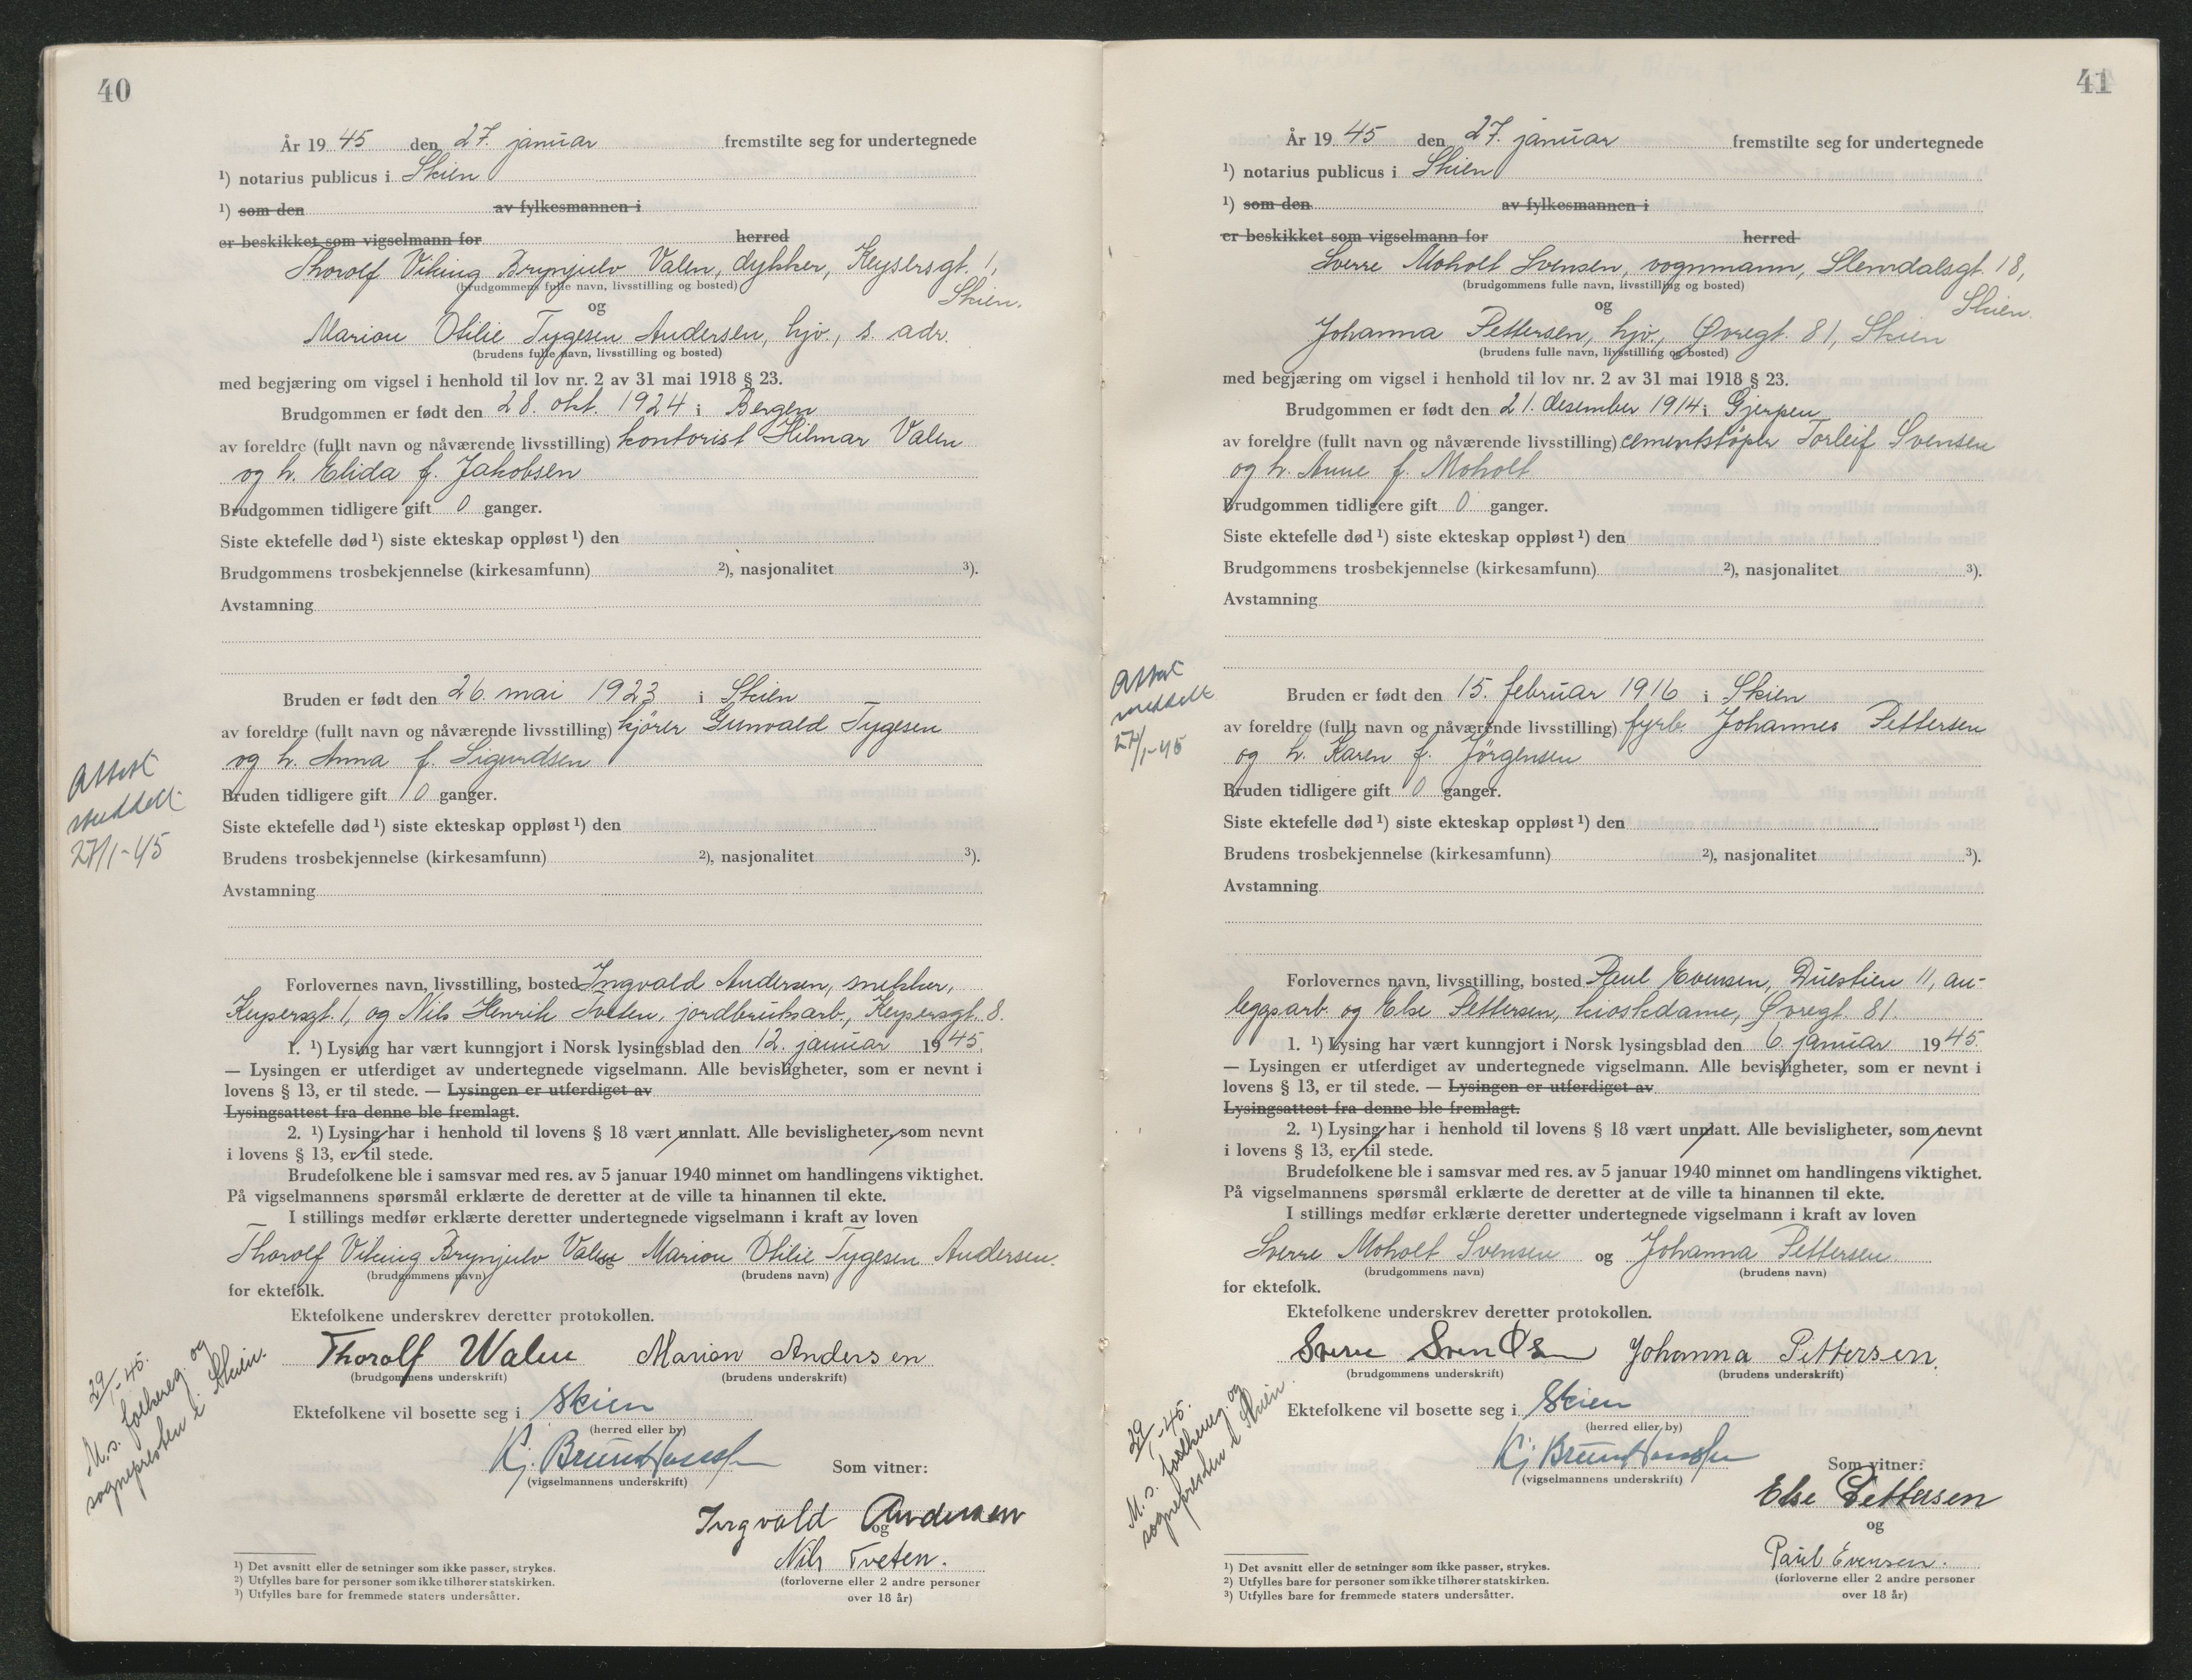 40
År 1945 den 27. januar fremstilte seg for undertegnede
¹) notarius publicus i Skien
¹) som den av fylkesmannen i
er beskikket som vigselmann for herred
Thorolf Viking Brynjulv Valen, dykker, Keysersgt. 1,
(brudgommens fulle navn, livsstilling og bosted)
Skien.
og
Marion Otilie Tygesen Andersen, hjv., s. adr.
(brudens fulle navn, livsstilling og bosted)
med begjæring om vigsel i henhold til lov nr. 2 av 31 mai 1918 § 23.
Brudgommen er født den 28. okt. 1924 i Bergen
av foreldre (fullt navn og nåværende livsstilling) kontorist Hilmar Valen
og h. Elida f. Jakobsen
Brudgommen tidligere gift 0 ganger.
Siste ektefelle død ¹) siste ekteskap oppløst ¹) den
Brudgommens trosbekjennelse (kirkesamfunn) ²), nasjonalitet ³).
Avstamning
Bruden er født den 26. mai 1923 i Skien
av foreldre (fullt navn og nåværende livsstilling) kjörer Gunvald Tygesen
og h. Anna f. Sigurdsen
Bruden tidligere gift 0 ganger.
Siste ektefelle død ¹) siste ekteskap oppløst ¹) den
Brudens trosbekjennelse (kirkesamfunn) ²), nasjonalitet ³).
Avstamning
Attest
meddelt
27/1-45
Forlovernes navn, livsstilling, bosted Ingvald Andersen, snekker,
Keysersgt. 1, og Nils Henrik Tveten, jordbruksarb., Keysersgt. 8.
1. ¹) Lysing har vært kunngjort i Norsk lysingsblad den 12. januar 1945.
— Lysingen er utferdiget av undertegnede vigselmann. Alle bevisligheter, som er nevnt i
lovens § 13, er til stede. — Lysingen er utferdiget av
Lysingsattest fra denne ble fremlagt.
2. ¹) Lysing har i henhold til lovens § 18 vært unnlatt. Alle bevisligheter, som nevnt
i lovens § 13, er til stede.
Brudefolkene ble i samsvar med res. av 5 januar 1940 minnet om handlingens viktighet.
På vigselmannens spørsmål erklærte de deretter at de ville ta hinannen til ekte.
I stillings medfør erklærte deretter undertegnede vigselmann i kraft av loven
Thorolf Viking Brynjulv Valen og Marion Otilie Tygesen Andersen.
(brudgommens navn) (brudens navn)
for ektefolk.
Ektefolkene underskrev deretter protokollen.
Thorolf Walen Marion Andersen
(brudgommens underskrift) (brudens underskrift)
Ektefolkene vil bosette seg i Skien
(herred eller by)
(vigselmannens underskrift)
Som vitner:
Ingvald Andersen
og
Nils Tveten.
(forloverne eller 2 andre personer
over 18 år)
29/1-45.
M.s. folkereg. og
sognepresten i Skien.
¹) Det avsnitt eller de setninger som ikke passer, strykes.
²) Utfylles bare for personer som ikke tilhører statskirken.
³) Utfylles bare for fremmede staters undersåtter.
41
År 1945 den 27. januar fremstilte seg for undertegnede
¹) notarius publicus i Skien
¹) som den av fylkesmannen i
er beskikket som vigselmann for herred
Sverre Moholt Svensen, vognmann, Slemdalsgt. 18,
(brudgommens fulle navn, livsstilling og bosted)
Skien.
og
Johanna Pettersen, hjv., Øvregt. 81, Skien
(brudens fulle navn, livsstilling og bosted)
med begjæring om vigsel i henhold til lov nr. 2 av 31 mai 1918 § 23.
Brudgommen er født den 21. desember 1914 i Gjerpen
av foreldre (fullt navn og nåværende livsstilling) cementstöper Torleif Svensen
og h. Anne f. Moholt
Brudgommen tidligere gift 0 ganger.
Siste ektefelle død ¹) siste ekteskap oppløst ¹) den
Brudgommens trosbekjennelse (kirkesamfunn) ²), nasjonalitet ³).
Avstamning
Attest
meddelt
27/1-45
Bruden er født den 15. februar 1916 i Skien
av foreldre (fullt navn og nåværende livsstilling) fyrb. Johannes Pettersen
og h. Karen f. Jörgensen
Bruden tidligere gift 0 ganger.
Siste ektefelle død ¹) siste ekteskap oppløst ¹) den
Brudens trosbekjennelse (kirkesamfunn) ²), nasjonalitet ³).
Avstamning
Forlovernes navn, livsstilling, bosted Paul Evensen, Duestien 11, an-
leggsarb. og Else Pettersen, kioskdame, Øvregt. 81.
1. ¹) Lysing har vært kunngjort i Norsk lysingsblad den 6. januar 1945.
— Lysingen er utferdiget av undertegnede vigselmann. Alle bevisligheter, som er nevnt i
lovens § 13, er til stede. — Lysingen er utferdiget av
Lysingsattest fra denne ble fremlagt.
2. ¹) Lysing har i henhold til lovens § 18 vært unnlatt. Alle bevisligheter, som nevnt
i lovens § 13, er til stede.
Brudefolkene ble i samsvar med res. av 5 januar 1940 minnet om handlingens viktighet.
På vigselmannens spørsmål erklærte de deretter at de ville ta hinannen til ekte.
I stillings medfør erklærte deretter undertegnede vigselmann i kraft av loven
Sverre Moholt Svensen og Johanna Pettersen.
(brudgommens navn) (brudens navn)
for ektefolk.
Ektefolkene underskrev deretter protokollen.
Sverre Svendsen Johanna Pettersen.
(brudgommens underskrift) (brudens underskrift)
Ektefolkene vil bosette seg i Skien
(herred eller by)
(vigselmannens underskrift)
Som vitner:
Else Pettersen
og
Paul Evensen.
(forloverne eller 2 andre personer
over 18 år)
29/1-45.
M.s. folkereg. og
sognepresten i Skien.
¹) Det avsnitt eller de setninger som ikke passer, strykes.
²) Utfylles bare for personer som ikke tilhører statskirken.
³) Utfylles bare for fremmede staters undersåtter.